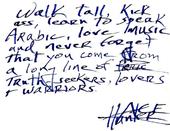 Walk tall, kick
ass, learn to speak
Arabic, love music
and never forget
that you come from
a long line of
truth seekers, lovers
+ warriors